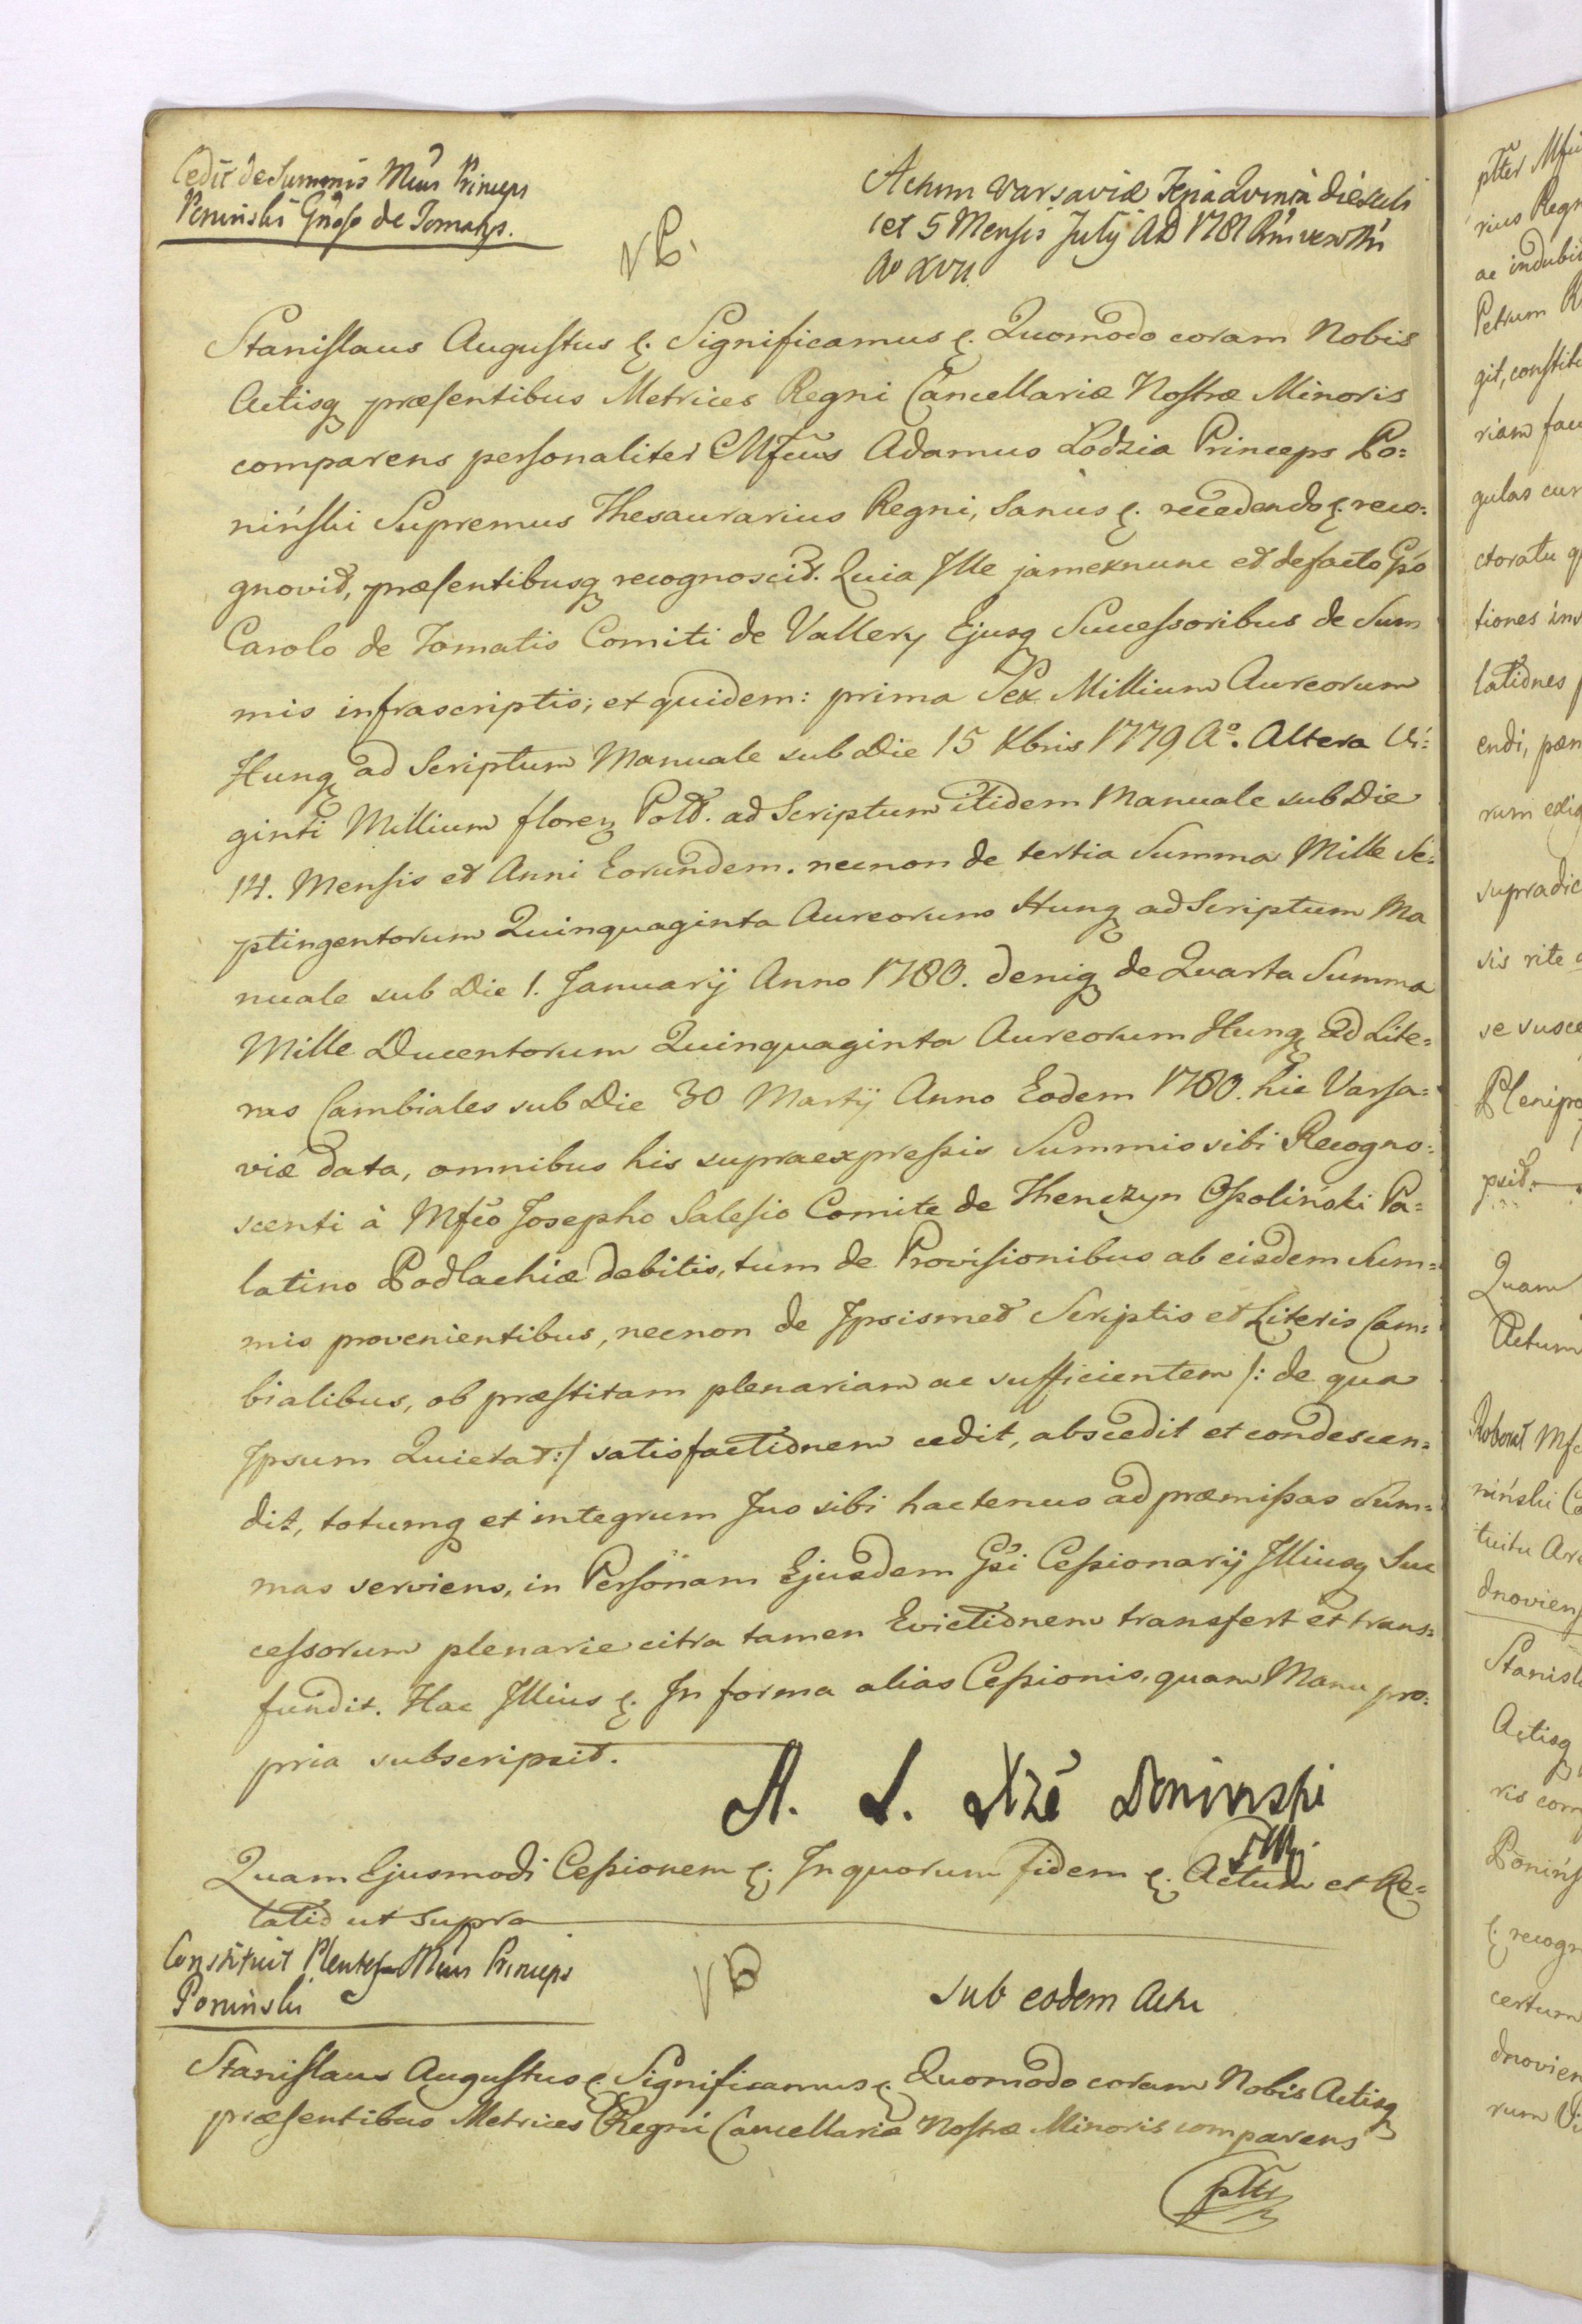 Cedit de Summis Mcus Princeps
Poninski Gnoso de Tomatis.
NB.
Actum Varsaviæ Feria Quinta die scili
cet 5 Mensis July AD 1781 Rni vero Nri
Ao XVII.
Stanislaus Augustus &. Significamus &. Quomodo coram Nobis
Actisq præsentibus Metrices Regni Cancellariæ Nostræ Minoris
comparens personaliter Mfcus Adamus Lodzia Princeps Po=
niński Supremus Thesaurarius Regni, Sanus &. recedendo &. reco=
gnovit, præsentibusq recognoscit. Quia Ille jamexnunc et defacto Gso
Carolo de Tomatis Comiti de Vallery Ejusq Successoribus de Sum
mis infrascriptis; et quidem: prima Sex Millium Aureorum
Hung ad Scriptum Manuale sub Die 15 Xbris 1779 Ao. Altera Vi=
ginti Millium floren Poll. ad Scriptum itidem Manuale sub Die
14. Mensis et Anni Eorundem. necnon de tertia Summa Mille Se=
ptingentorum Quinquaginta Aureorum Hung ad Scriptum Ma
nuale sub Die 1. Januarij Anno 1780. deniq de Quarta Summa
Mille Ducentorum Quinquaginta Aureorum Hung ad Lite=
ras Cambiales sub Die 30 Martij Anno Eodem 1780. hic Varsa=
viæ data, omnibus his supraexpressis Summis sibi Recogno=
scenti à Mfco Josepho Salesio Comite de Thenczyn Ossoliński Pa=
latino Podlachiæ debitis, tum de Provisionibus ab eisdem Sum=
mis provenientibus, necnon de Ipsismet Scriptis et Literis Cam=
bialibus, ob præstitam plenariam ac sufficientem /: de qua
Ipsum Quietat :/ satisfactionem cedit, abscedit et condescen=
dit, totumq et integrum Jus sibi hactenus ad præmissas Sum=
mas serviens, in Personam Ejusdem Gsi Cessionarij Illiusq Suc
cessorum plenarie citra tamen Evictionem transfert et trans=
fundit. Hac Illius &. In forma alias Cessionis, quam Manu pro=
pria subscripsit.
A. L. Xże Poninski
Quam Ejusmodi Cessionem &. In quorum fidem &. Actum et Re=
latio ut Supra
Constituit Plentes Mcus Princeps
Poninski
NB
Sub eodem Actu
Stanislaus Augustus &. Significamus &. Quomodo coram Nobis Actisq
præsentibus Metrices Regni Cancellariæ Nostræ Minoris comparens
ptter